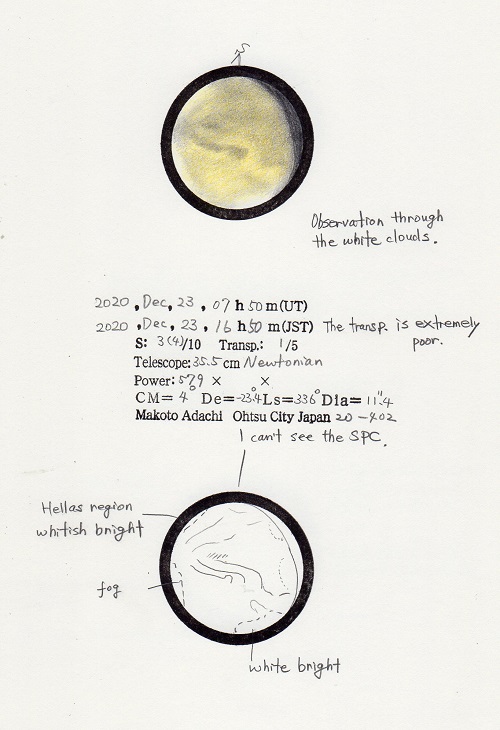 S
Observation through
the white clouds.
2020, Dec, 23, 07 h 50 m (UT)
2020, Dec, 23, 16 h 50 m (JST) The transp. is extremely
poor.
S: 3(4)/10 Transp.: 1/5
Telescope: 35.5 cm Newtonian
Power: 579 × ×
CM= 4° De= -23.4° Ls= 336° Dia= 11".4
Makoto Adachi Ohtsu City Japan 20-402
I can't see the SPC.
Hellas region
whitish bright
fog
white bright